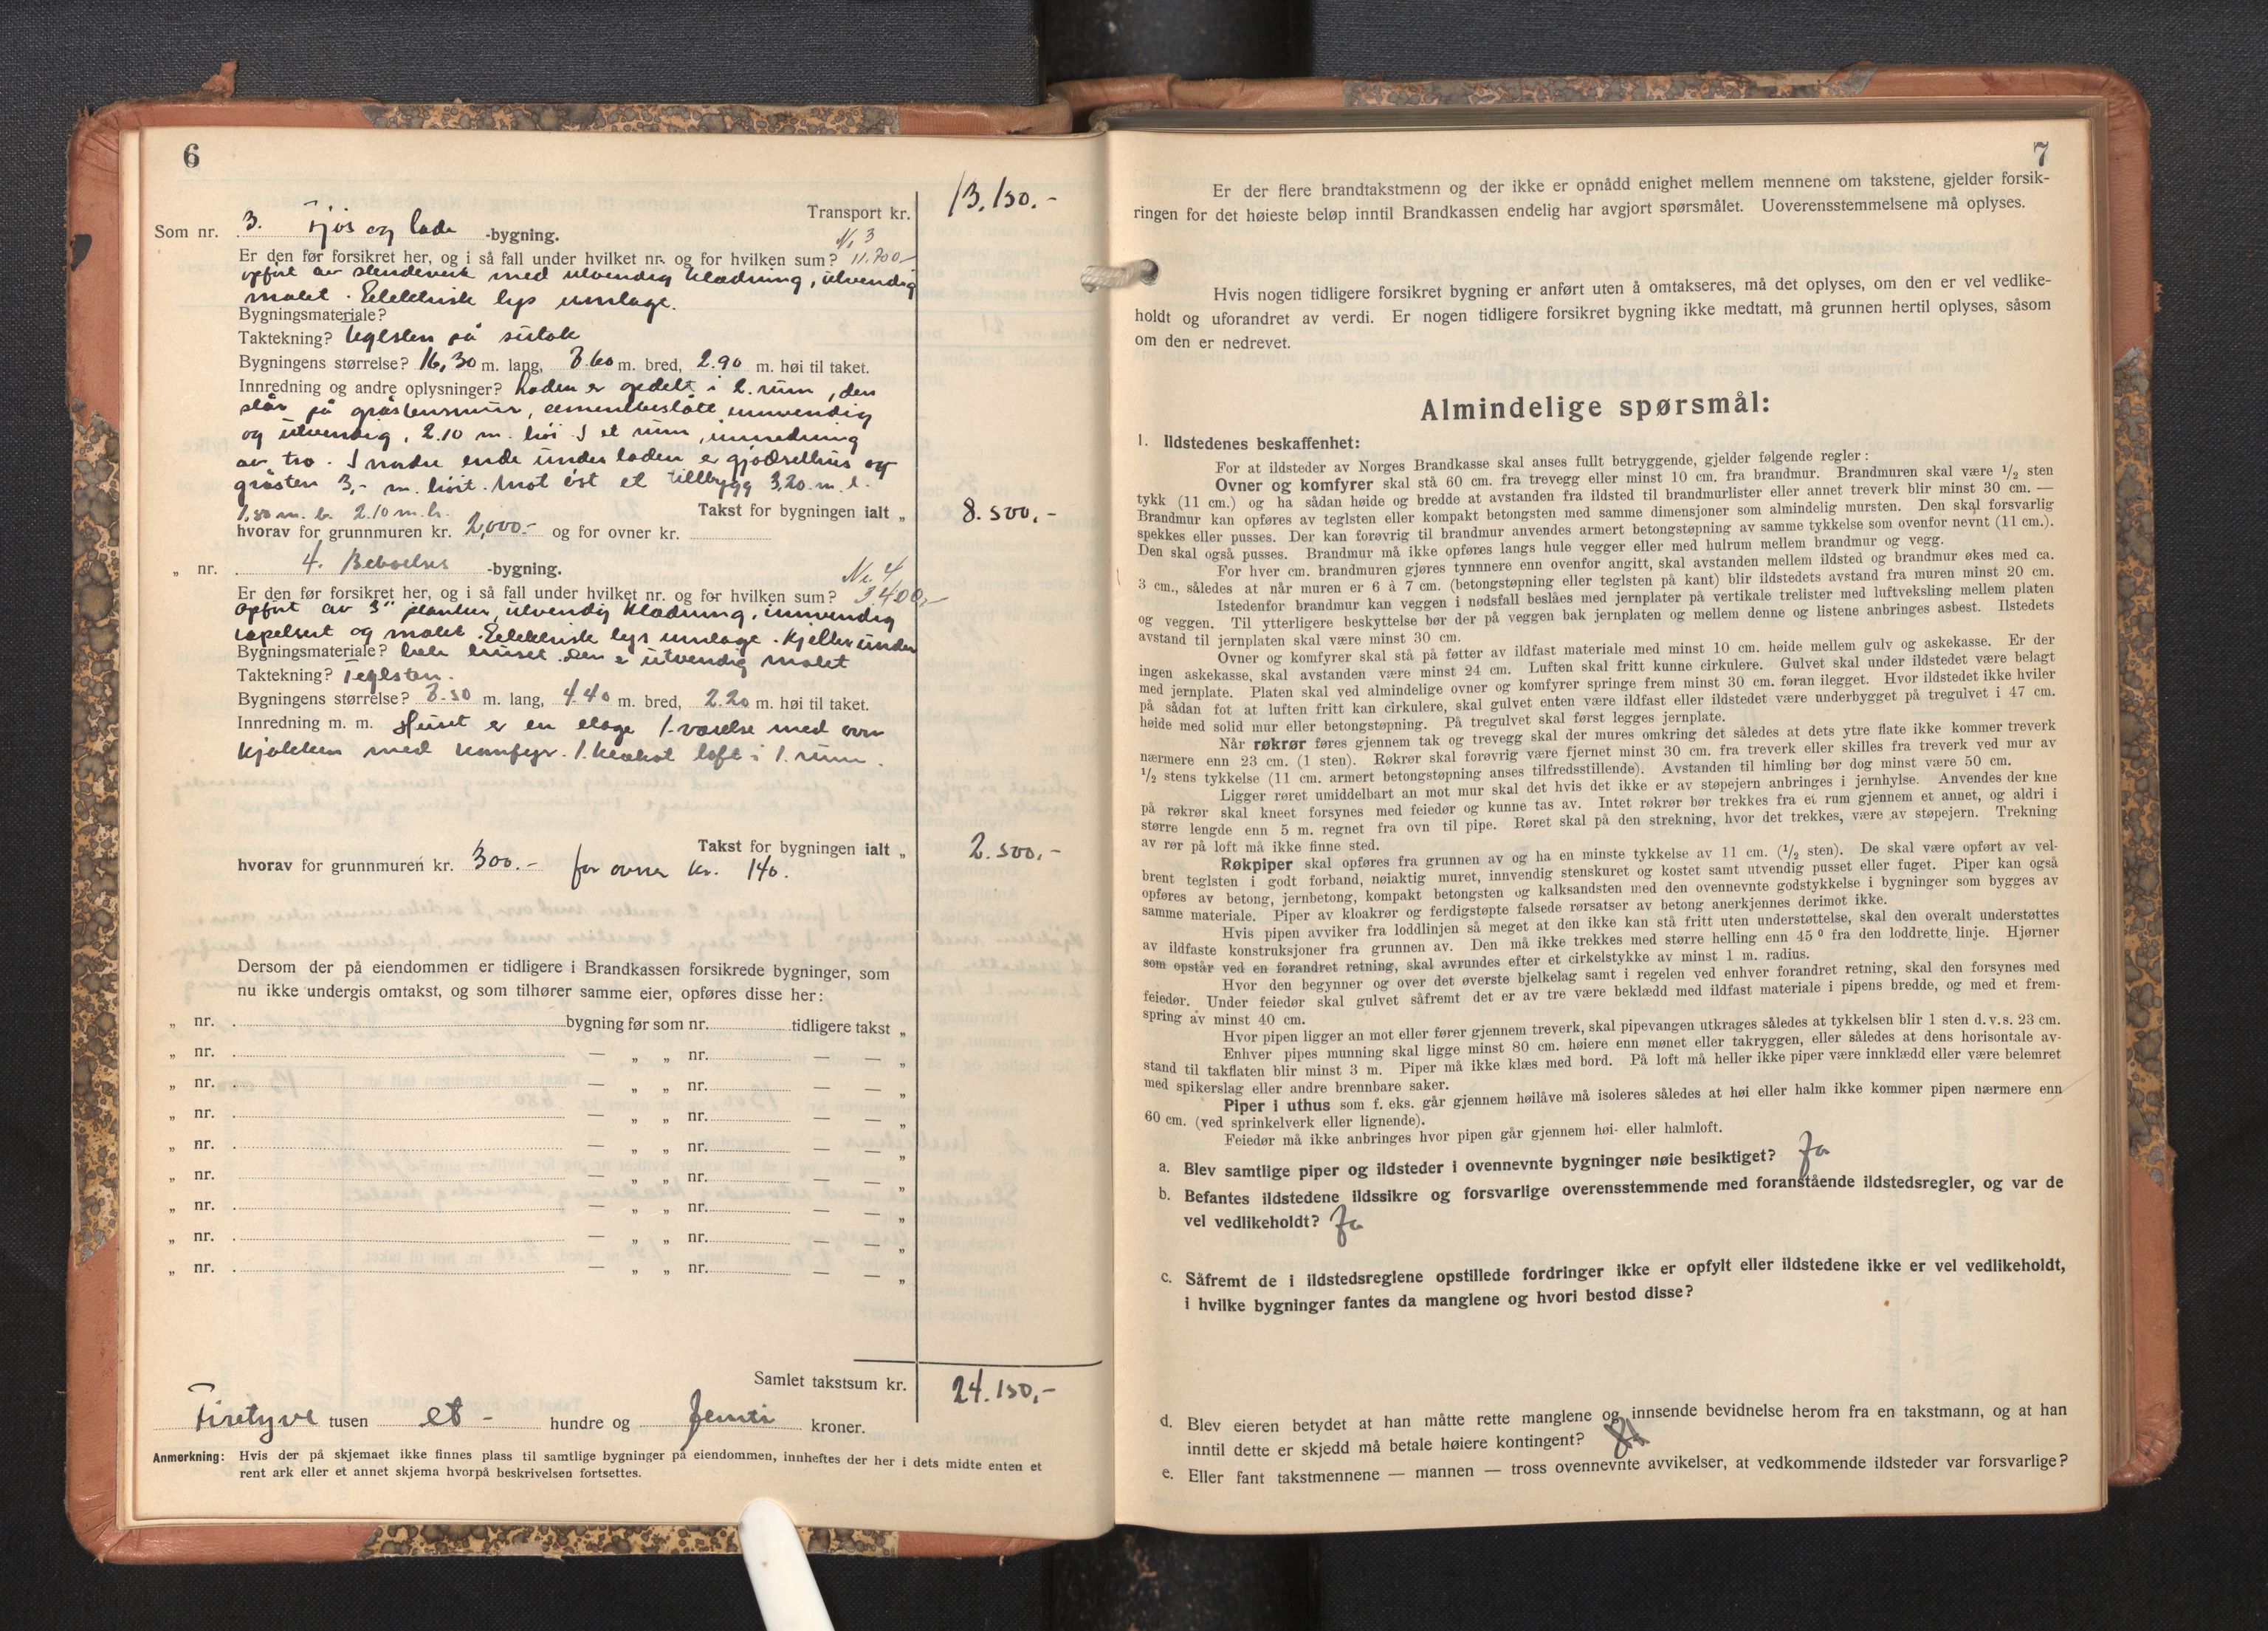 6
Transport kr. 13.150.-
Som nr. 3. Fjøs og lade -bygning.
Er den før forsikret her, og i så fall under hvilket nr. og for hvilken sum? Nr 3 11.700.-
opført av stenderverk med utvendig klædning, utvendig
malet. Elektrisk lys innlage.
Bygningsmateriale?
Taktekning? teglsten på sutak
Bygningens størrelse? 16,30 m. lang, 8.60 m. bred, 2.90 m. høi til taket.
Innredning og andre oplysninger? Laden er opdelt i 2. rum, den
står på gråstensmur, cementbeslått innvendig
og utvendig, 2.10 m. høi. I et rum, innredning
av tre. I nordre ende under laden er gjødselhus og
gråsten 3,- m. høit. Mot øst et tillbygg 3,20. m. l.
1,80 m. b. 2.10 m. h. Takst for bygningen ialt „ 8.500.-
hvorav for grunnmuren kr. 2,000.- og for ovner kr.
„ nr. 4. Beboelses -bygning.
Er den før forsikret her, og i så fall under hvilket nr. og for hvilken sum? Nr. 4 3400,-
opført av 3" planker, utvendig klædning, innvendig
tapetsert og malet. Elektrisk lys innlage. Kjeller under
Bygningsmateriale? hele huset. Den e utvendig malet
Taktekning? Teglsten.
Bygningens størrelse? 8.50 m. lang, 4.40 m. bred, 2.20 m. høi til taket.
Innredning m. m. Huset er en etage 1-værelse med ovn
kjøkken med komfyr. 1. kvist loft i 1. rum.
Takst for bygningen ialt „ 2.500.-
hvorav for grunnmuren kr. 300.- for ovner kr. 140.
Dersom der på eiendommen er tidligere i Brandkassen forsikrede bygninger, som
nu ikke undergis omtakst, og som tilhører samme eier, opføres disse her:
„ nr. bygning før som nr. tidligere takst „
„ nr. — „ „ nr. — — „
„ nr. — „ „ nr. — — „
„ nr. — „ „ nr. — — „
„ nr. — „ „ nr. — — „
„ nr. — „ „ nr. — — „
„ nr. — „ „ nr. — — „
„ nr. — „ „ nr. — — „
„ nr. — „ „ nr. — — „
Samlet takstsum kr. 24.150,-
Firetyve tusen et - hundre og femti kroner.
Anmerkning: Hvis der på skjemaet ikke finnes plass til samtlige bygninger på eiendommen, innheftes der her i dets midte enten et
rent ark eller et annet skjema hvorpå beskrivelsen fortsettes.
7
Er der flere brandtakstmenn og der ikke er opnådd enighet mellem mennene om takstene, gjelder forsik-
ringen for det høieste beløp inntil Brandkassen endelig har avgjort spørsmålet. Uoverensstemmelsene må oplyses.
Hvis nogen tidligere forsikret bygning er anført uten å omtakseres, må det oplyses, om den er vel vedlike-
holdt og uforandret av verdi. Er nogen tidligere forsikret bygning ikke medtatt, må grunnen hertil oplyses, såsom
om den er nedrevet.
Almindelige spørsmål:
1. Ildstedenes beskaffenhet:
For at ildsteder av Norges Brandkasse skal anses fullt betryggende, gjelder følgende regler:
Ovner og komfyrer skal stå 60 cm. fra trevegg eller minst 10 cm. fra brandmur. Brandmuren skal være 1/2 sten
tykk (11 cm.) og ha sådan høide og bredde at avstanden fra ildsted til brandmurlister eller annet treverk blir minst 30 cm. —
Brandmur kan opføres av teglsten eller kompakt betongsten med samme dimensjoner som almindelig mursten. Den skal forsvarlig
spekkes eller pusses. Der kan forøvrig til brandmur anvendes armert betongstøpning av samme tykkelse som ovenfor nevnt (11 cm.).
Den skal også pusses. Brandmur må ikke opføres langs hule vegger eller med hulrum mellem brandmur og vegg.
For hver cm. brandmuren gjøres tynnere enn ovenfor angitt, skal avstanden mellem ildsted og brandmur økes med ca.
3 cm., således at når muren er 6 à 7 cm. (betongstøpning eller teglsten på kant) blir ildstedets avstand fra muren minst 20 cm.
Istedenfor brandmur kan veggen i nødsfall beslåes med jernplater på vertikale trelister med luftveksling mellem platen
og veggen. Til ytterligere beskyttelse bør der på veggen bak jernplaten og mellem denne og listene anbringes asbest. Ilstedets
avstand til jernplaten skal være minst 30 cm.
Ovner og komfyrer skal stå på føtter av ildfast materiale med minst 10 cm. høide mellem gulv og askekasse. Er der
ingen askekasse, skal avstanden være minst 24 cm. Luften skal fritt kunne cirkulere. Gulvet skal under ildstedet være belagt
med jernplate. Platen skal ved almindelige ovner og komfyrer springe frem minst 30 cm. foran ilegget. Hvor ildstedet ikke hviler
på sådan fot at luften fritt kan cirkulere, skal gulvet enten være ildfast eller ildstedet være underbygget på tregulvet i 47 cm.
høide med solid mur eller betongstøpning. På tregulvet skal først legges jernplate.
Når røkrør føres gjennem tak og trevegg skal der mures omkring det således at dets ytre flate ikke kommer treverk
nærmere enn 23 cm. (1 sten). Røkrør skal forøvrig være fjernet minst 30 cm. fra treverk eller skilles fra treverk ved mur av
1/2 stens tykkelse (11 cm. armert betongstøpning anses tilfredsstillende). Avstanden til himling bør dog minst være 50 cm.
Ligger røret umiddelbart an mot mur skal det hvis det ikke er av støpejern anbringes i jernhylse. Anvendes der kne
på røkrør skal kneet forsynes med feiedør og kunne tas av. Intet røkrør bør trekkes fra et rum gjennem et annet, og aldri i
større lengde enn 5 m. regnet fra ovn til pipe. Røret skal på den strekning, hvor det trekkes, være av støpejern. Trekning
av rør på loft må ikke finne sted.
Røkpiper skal opføres fra grunnen av og ha en minste tykkelse av 11 cm. (1/2 sten). De skal være opført av vel-
brent teglsten i godt forband, nøiaktig muret, innvendig stenskuret og kostet samt utvendig pusset eller fuget. Piper kan også
opføres av betong, jernbetong, kompakt betongsten og kalksandsten med den ovennevnte godstykkelse i bygninger som bygges av
samme materiale. Piper av kloakrør og ferdigstøpte falsede rørsatser av betong anerkjennes derimot ikke.
Hvis pipen avviker fra loddlinjen så meget at den ikke kan stå fritt uten understøttelse, skal den overalt understøttes
av ildfaste konstruksjoner fra grunnen av. Den må ikke trekkes med større helling enn 45° fra den loddrette linje. Hjørner
som opstår ved en forandret retning, skal avrundes efter et cirkelstykke av minst 1 m. radius.
Hvor den begynner og over det øverste bjelkelag samt i regelen ved enhver forandret retning, skal den forsynes med
feiedør. Under feiedør skal gulvet såfremt det er av tre være beklædd med ildfast materiale i pipens bredde, og med et frem-
spring av minst 40 cm.
Hvor pipen ligger an mot eller fører gjennem treverk, skal pipevangen utkrages således at tykkelsen blir 1 sten d. v. s. 23 cm.
Enhver pipes munning skal ligge minst 80 cm. høiere enn mønet eller takryggen, eller således at dens horisontale av-
stand til takflaten blir minst 3 m. Piper må ikke klæs med bord. På loft må heller ikke piper være innklædd eller være belemret
med spikerslag eller andre brennbare saker.
Piper i uthus som f. eks. går gjennem høilåve må isoleres således at høi eller halm ikke kommer pipen nærmere enn
60 cm. (ved sprinkelverk eller lignende).
Feiedør må ikke anbringes hvor pipen går gjennem høi- eller halmloft.
a. Blev samtlige piper og ildsteder i ovennevnte bygninger nøie besiktiget? Ja
b. Befantes ildstedene ildssikre og forsvarlige overensstemmende med foranstående ildstedsregler, og var de
vel vedlikeholdt? Ja
c. Såfremt de i ildstedsreglene opstillede fordringer ikke er opfylt eller ildstedene ikke er vel vedlikeholdt,
i hvilke bygninger fantes da manglene og hvori bestod disse?
d. Blev eieren betydet at han måtte rette manglene og innsende bevidnelse herom fra en takstmann, og at han
inntil dette er skjedd må betale høiere kontingent?
e. Eller fant takstmennene — mannen — tross ovennevnte avvikelser, at vedkommende ildsteder var forsvarlige?